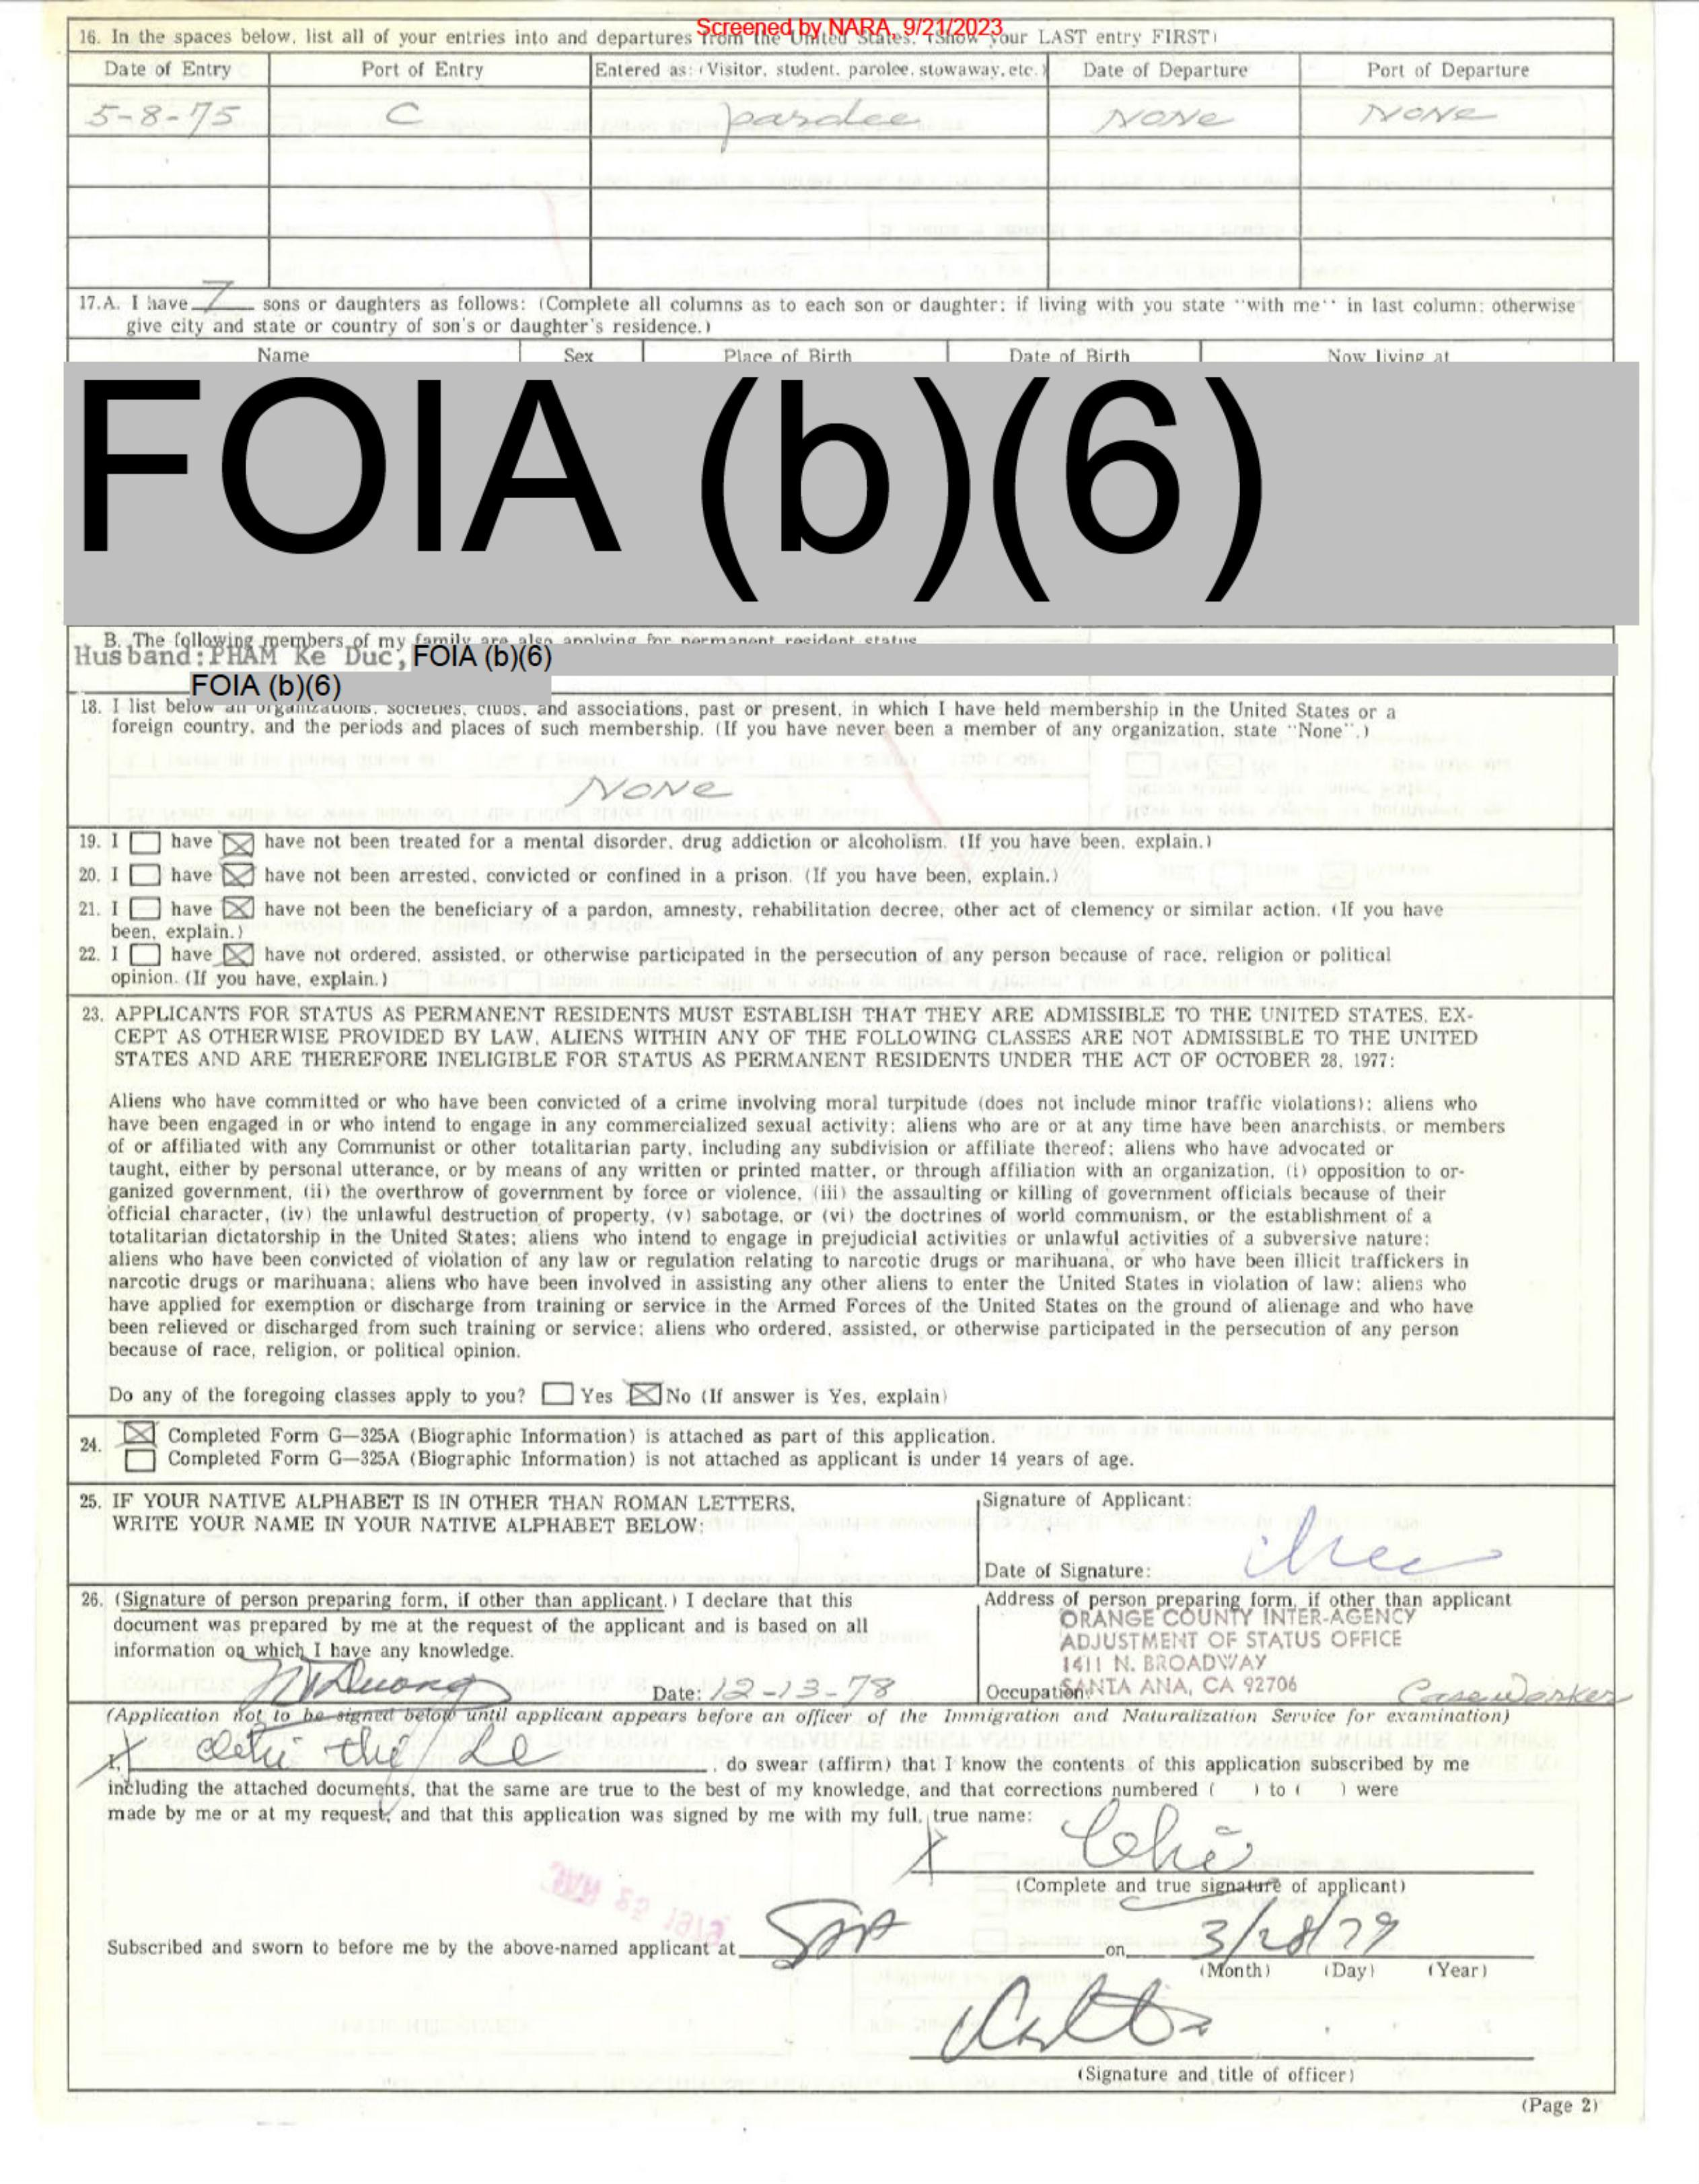 Screened by NARA, 9/21/2023
16. In the spaces below, list all of your entries into and departures from the United States. (Show your LAST entry FIRST)
Date of Entry Port of Entry Entered as: (Visitor, student, parolee, stowaway, etc.) Date of Departure Port of Departure
5-8-75 C parolee NONE NONE
17.A. I have 7 sons or daughters as follows: (Complete all columns as to each son or daughter; if living with you state "with me" in last column; otherwise
give city and state or country of son's or daughter's residence.)
Name Sex Place of Birth Date of Birth Now living at
FOIA (b)(6)
B. The following members of my family are also applying for permanent resident status
Husband: PHAM Ke Duc, FOIA (b)(6)
FOIA (b)(6)
18. I list below all organizations, societies, clubs, and associations, past or present, in which I have held membership in the United States or a
foreign country, and the periods and places of such membership. (If you have never been a member of any organization, state "None".)
NONE
19. I have have not been treated for a mental disorder, drug addiction or alcoholism. (If you have been, explain.)
20. I have have not been arrested, convicted or confined in a prison. (If you have been, explain.)
21. I have have not been the beneficiary of a pardon, amnesty, rehabilitation decree, other act of clemency or similar action. (If you have
been, explain.)
22. I have have not ordered, assisted, or otherwise participated in the persecution of any person because of race, religion or political
opinion. (If you have, explain.)
23. APPLICANTS FOR STATUS AS PERMANENT RESIDENTS MUST ESTABLISH THAT THEY ARE ADMISSIBLE TO THE UNITED STATES. EX-
CEPT AS OTHERWISE PROVIDED BY LAW, ALIENS WITHIN ANY OF THE FOLLOWING CLASSES ARE NOT ADMISSIBLE TO THE UNITED
STATES AND ARE THEREFORE INELIGIBLE FOR STATUS AS PERMANENT RESIDENTS UNDER THE ACT OF OCTOBER 28, 1977:
Aliens who have committed or who have been convicted of a crime involving moral turpitude (does not include minor traffic violations); aliens who
have been engaged in or who intend to engage in any commercialized sexual activity; aliens who are or at any time have been anarchists, or members
of or affiliated with any Communist or other totalitarian party, including any subdivision or affiliate thereof; aliens who have advocated or
taught, either by personal utterance, or by means of any written or printed matter, or through affiliation with an organization, (i) opposition to or-
ganized government, (ii) the overthrow of government by force or violence, (iii) the assaulting or killing of government officials because of their
official character, (iv) the unlawful destruction of property, (v) sabotage, or (vi) the doctrines of world communism, or the establishment of a
totalitarian dictatorship in the United States; aliens who intend to engage in prejudicial activities or unlawful activities of a subversive nature;
aliens who have been convicted of violation of any law or regulation relating to narcotic drugs or marihuana, or who have been illicit traffickers in
narcotic drugs or marihuana; aliens who have been involved in assisting any other aliens to enter the United States in violation of law; aliens who
have applied for exemption or discharge from training or service in the Armed Forces of the United States on the ground of alienage and who have
been relieved or discharged from such training or service; aliens who ordered, assisted, or otherwise participated in the persecution of any person
because of race, religion, or political opinion.
Do any of the foregoing classes apply to you? Yes No (If answer is Yes, explain)
24. Completed Form G-325A (Biographic Information) is attached as part of this application.
Completed Form G-325A (Biographic Information) is not attached as applicant is under 14 years of age.
25. IF YOUR NATIVE ALPHABET IS IN OTHER THAN ROMAN LETTERS,
WRITE YOUR NAME IN YOUR NATIVE ALPHABET BELOW:
Signature of Applicant:
Date of Signature:
26. (Signature of person preparing form, if other than applicant.) I declare that this
document was prepared by me at the request of the applicant and is based on all
information on which I have any knowledge.
Date: 12-13-78
Address of person preparing form, if other than applicant
ORANGE COUNTY INTER-AGENCY
ADJUSTMENT OF STATUS OFFICE
1411 N. BROADWAY
Occupation: SANTA ANA, CA 92706 Case Worker
(Application not to be signed below until applicant appears before an officer of the Immigration and Naturalization Service for examination)
I, thi Le, do swear (affirm) that I know the contents of this application subscribed by me
including the attached documents, that the same are true to the best of my knowledge, and that corrections numbered ( ) to ( ) were
made by me or at my request, and that this application was signed by me with my full, true name:
(Complete and true signature of applicant)
Subscribed and sworn to before me by the above-named applicant at on 3/28/79
(Month) (Day) (Year)
(Signature and title of officer)
(Page 2)